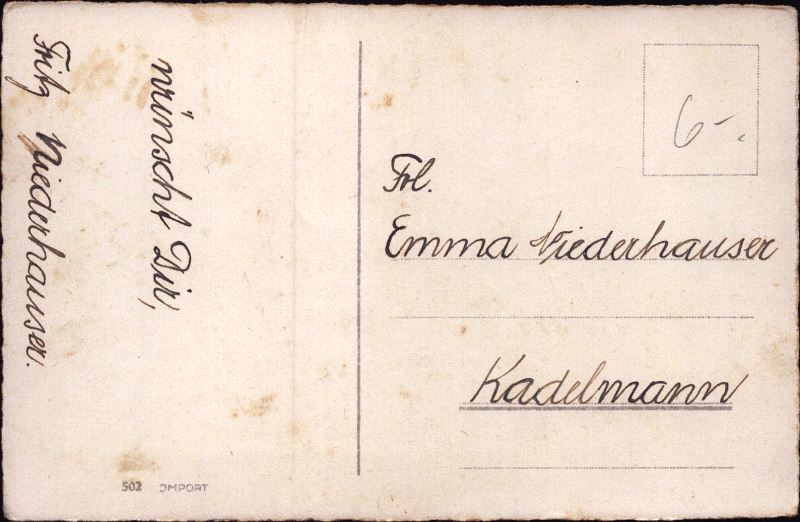 wünscht Dir,
Fritz Niederhauser.
6-.
Frl.
Emma Niederhauser
Kadelmann
502 IMPORT